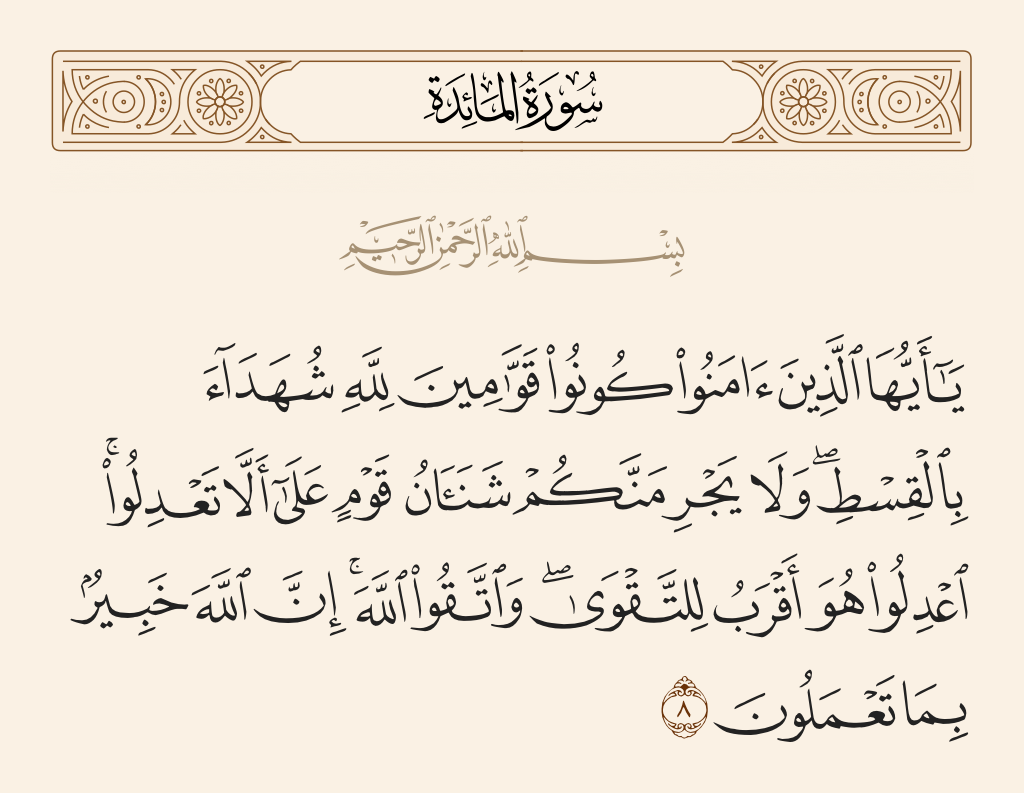 سُورَةُ المَائِدَةِ
بِسْمِ ٱللَّهِ ٱلرَّحْمَٰنِ ٱلرَّحِيمِ
يَـٰٓأَيُّهَا ٱلَّذِينَ ءَامَنُوا۟ كُونُوا۟ قَوَّٰمِينَ لِلَّهِ شُهَدَآءَ
بِٱلْقِسْطِ ۖ وَلَا يَجْرِمَنَّكُمْ شَنَـَٔانُ قَوْمٍ عَلَىٰٓ أَلَّا تَعْدِلُوا۟ ۚ
ٱعْدِلُوا۟ هُوَ أَقْرَبُ لِلتَّقْوَىٰ ۖ وَٱتَّقُوا۟ ٱللَّهَ ۚ إِنَّ ٱللَّهَ خَبِيرٌۢ
بِمَا تَعْمَلُونَ ٨